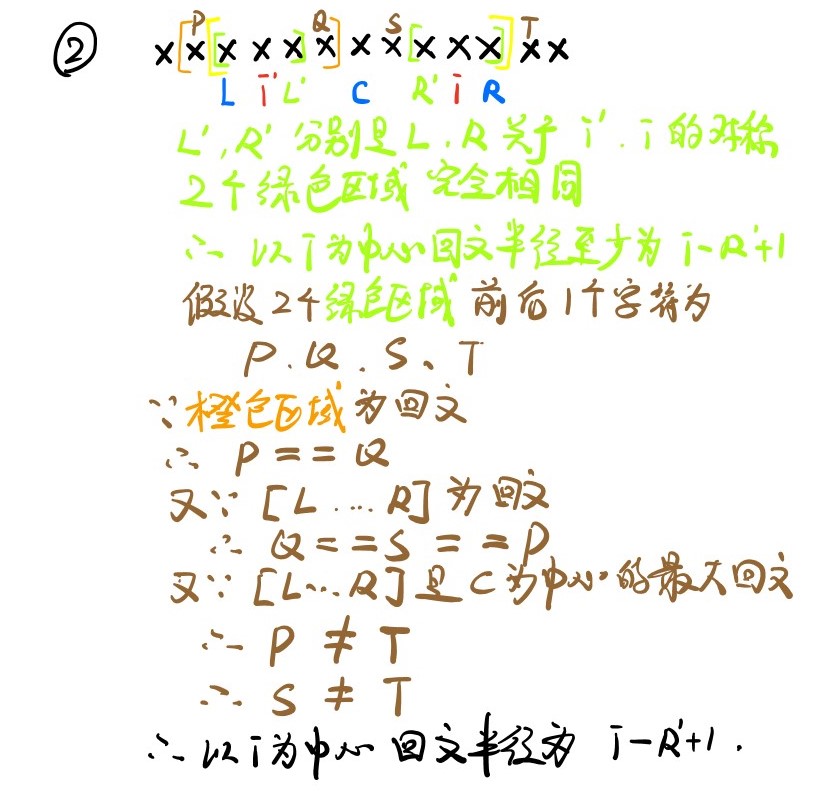 ②
P Q S T
x[x[x x x]x]x x[x x x]x x
L i' L' C R' i R
L', R' 分别是 L、R 关于 i'、i 的对称
2个绿色区域 完全相同
∴ 以 i 为中心回文半径至少为 i-R'+1
假设2个绿色区域 前后1个字符为
P、Q、S、T
∵ 橙色区域为回文
∴ P == Q
又∵ [L ... R] 为回文
∴ Q == S == P
又∵ [L...R] 是 C 为中心的最大回文
∴ P ≠ T
∴ S ≠ T
∴ 以 i 为中心 回文半径为 i-R'+1.